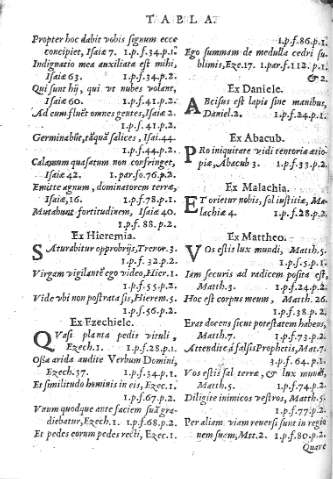 TABLA
Propter hoc dabit vobis signum ecce
concipiet, Isaiæ 7. 1.p.f.34.p.1.
Indignatio mea auxiliata est mihi,
Isaiæ 63. 1.p.f.34.p.2.
Qui sunt hij, qui vt nubes volant,
Isaiæ 60. 1.p.f.41.p.2.
Ad eum fluẽt omnes gentes, Isaiæ 2.
1.p.f.41.p.2.
Germinabũt, tãquã salices, Isai.44.
1.p.f.44.p.2.
Calamum quasatum non confringet,
Isaiæ 42. 1.par.fo.76.p.2.
Emitte agnum, dominatorem terræ,
Isaiæ,16. 1.p.f.78.p.1.
Mutabunt fortitudinem, Isaiæ 40.
1.p.f. 88.p.2.
Ex Hieremia.
SAturabitur opprobrijs, Treror.3.
1.p.f. 32.p.2.
Virgam vigilantẽ ego video, Hier.1.
1.p.f.55.p.2.
Vide vbi non postrata sis, Hierem.5.
1.p.f.56.p.2.
Ex Ezechiele.
QVasi planta pedis vituli,
Ezech.1. 1.p.f.28.p.1.
Ossa arida audite Verbum Domini,
Ezech.37. 1.p.f.34.p.1.
Et similitudo hominis in eis, Ezec.1.
1.p.f.67.p.2.
Vnum quodque ante faciem suã gra-
diebatur, Ezech.1. 1.p.f.68.p.2.
Et pedes eorum pedes recti, Ezec.1.
1.p.f.86.p.1.
Ego summam de medulla cedri su
blimis, Eze.17. 1.par.f.112. p.1.
& 2
Ex Daniele.
ABcisus est lapis sine manibus,
Daniel.2. 1.p.f.24.p.1.
Ex Abacub.
PRo iniquitate vidi tentoria ætio-
piæ, Abacub 3. 1.p.f.33.p.2.
Ex Malachia.
ET orietur nobis, sol iustitiæ, Ma-
lachiæ 4. 1.p.f.28.p.2.
Ex Mattheo.
VOs estis lux mundi, Matth.5.
1.p.f.5.p.1.
Iam securis ad radicem posita est,
Matth.3. 1.p.f.24.p.2.
Hoc est corpus meum, Matth.26.
1.p.f.38.p.2.
Erat docens sicut potestatem habens,
Matth.7. 1.p.f.73.p.2.
Attendite à falsis Prophetis, Mat.7.
3.p.f.64.p.1.
Vos estis sal terræ, & lux mundi,
Matth.5. 1.p.f.74.p.2.
Diligite inimicos vestros, Matth.5.
1.p.f.77.p.2.
Per aliam viam reuersi sunt in regio
nem suam, Mt.2. 1.p.f.80.p.2.
Quare